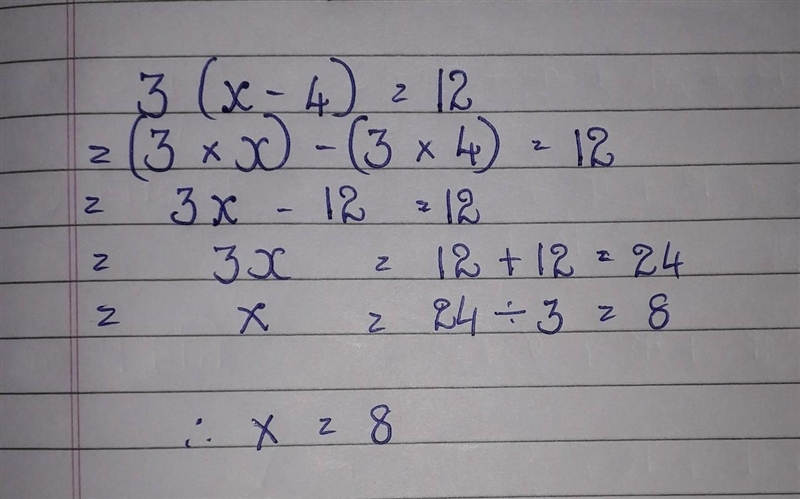 3 (x - 4) = 12
= (3 × x) - (3 × 4) = 12
= 3x - 12 = 12
= 3x = 12 + 12 = 24
= x = 24 ÷ 3 = 8
∴ x = 8